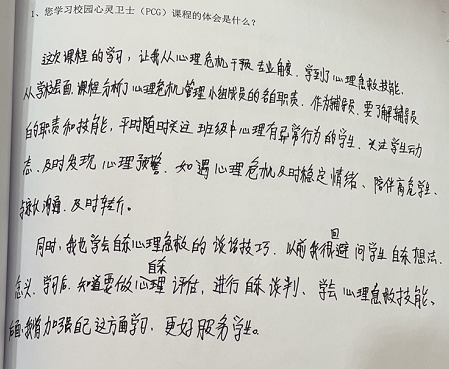 1、您学习校园心灵卫士（PCG）课程的体会是什么？
这次课程的学习，让我从心理危机干预专业角度，学到了心理急救技能。
从学校层面，课程分析了心理危机管理小组成员的各自职责。作为辅导员，要了解辅导员
的职责和技能，平时随时关注班级中心理有异常行为的学生，关注学生动
态，及时发现心理预警。如遇心理危机及时稳定情绪、陪伴高危学生、
与家长沟通、及时转介。
同时，我也学会自杀心理急救的谈话技巧。以前我很回避问学生自杀想法、
意义，学习后，知道要做心理自杀评估，进行自杀谈判、学会心理急救技能。
后面我将加强自己这方面学习，更好服务学生。